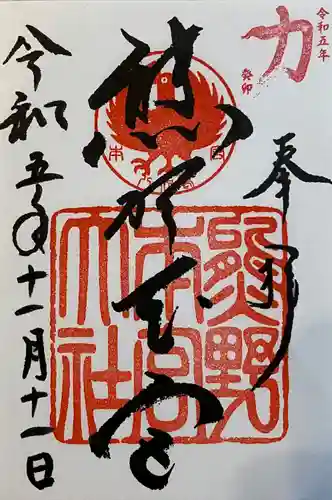 力
令和五年
癸卯
奉拝
熊野本宮
熊野
本宮
大社
令和五年十一月十一日